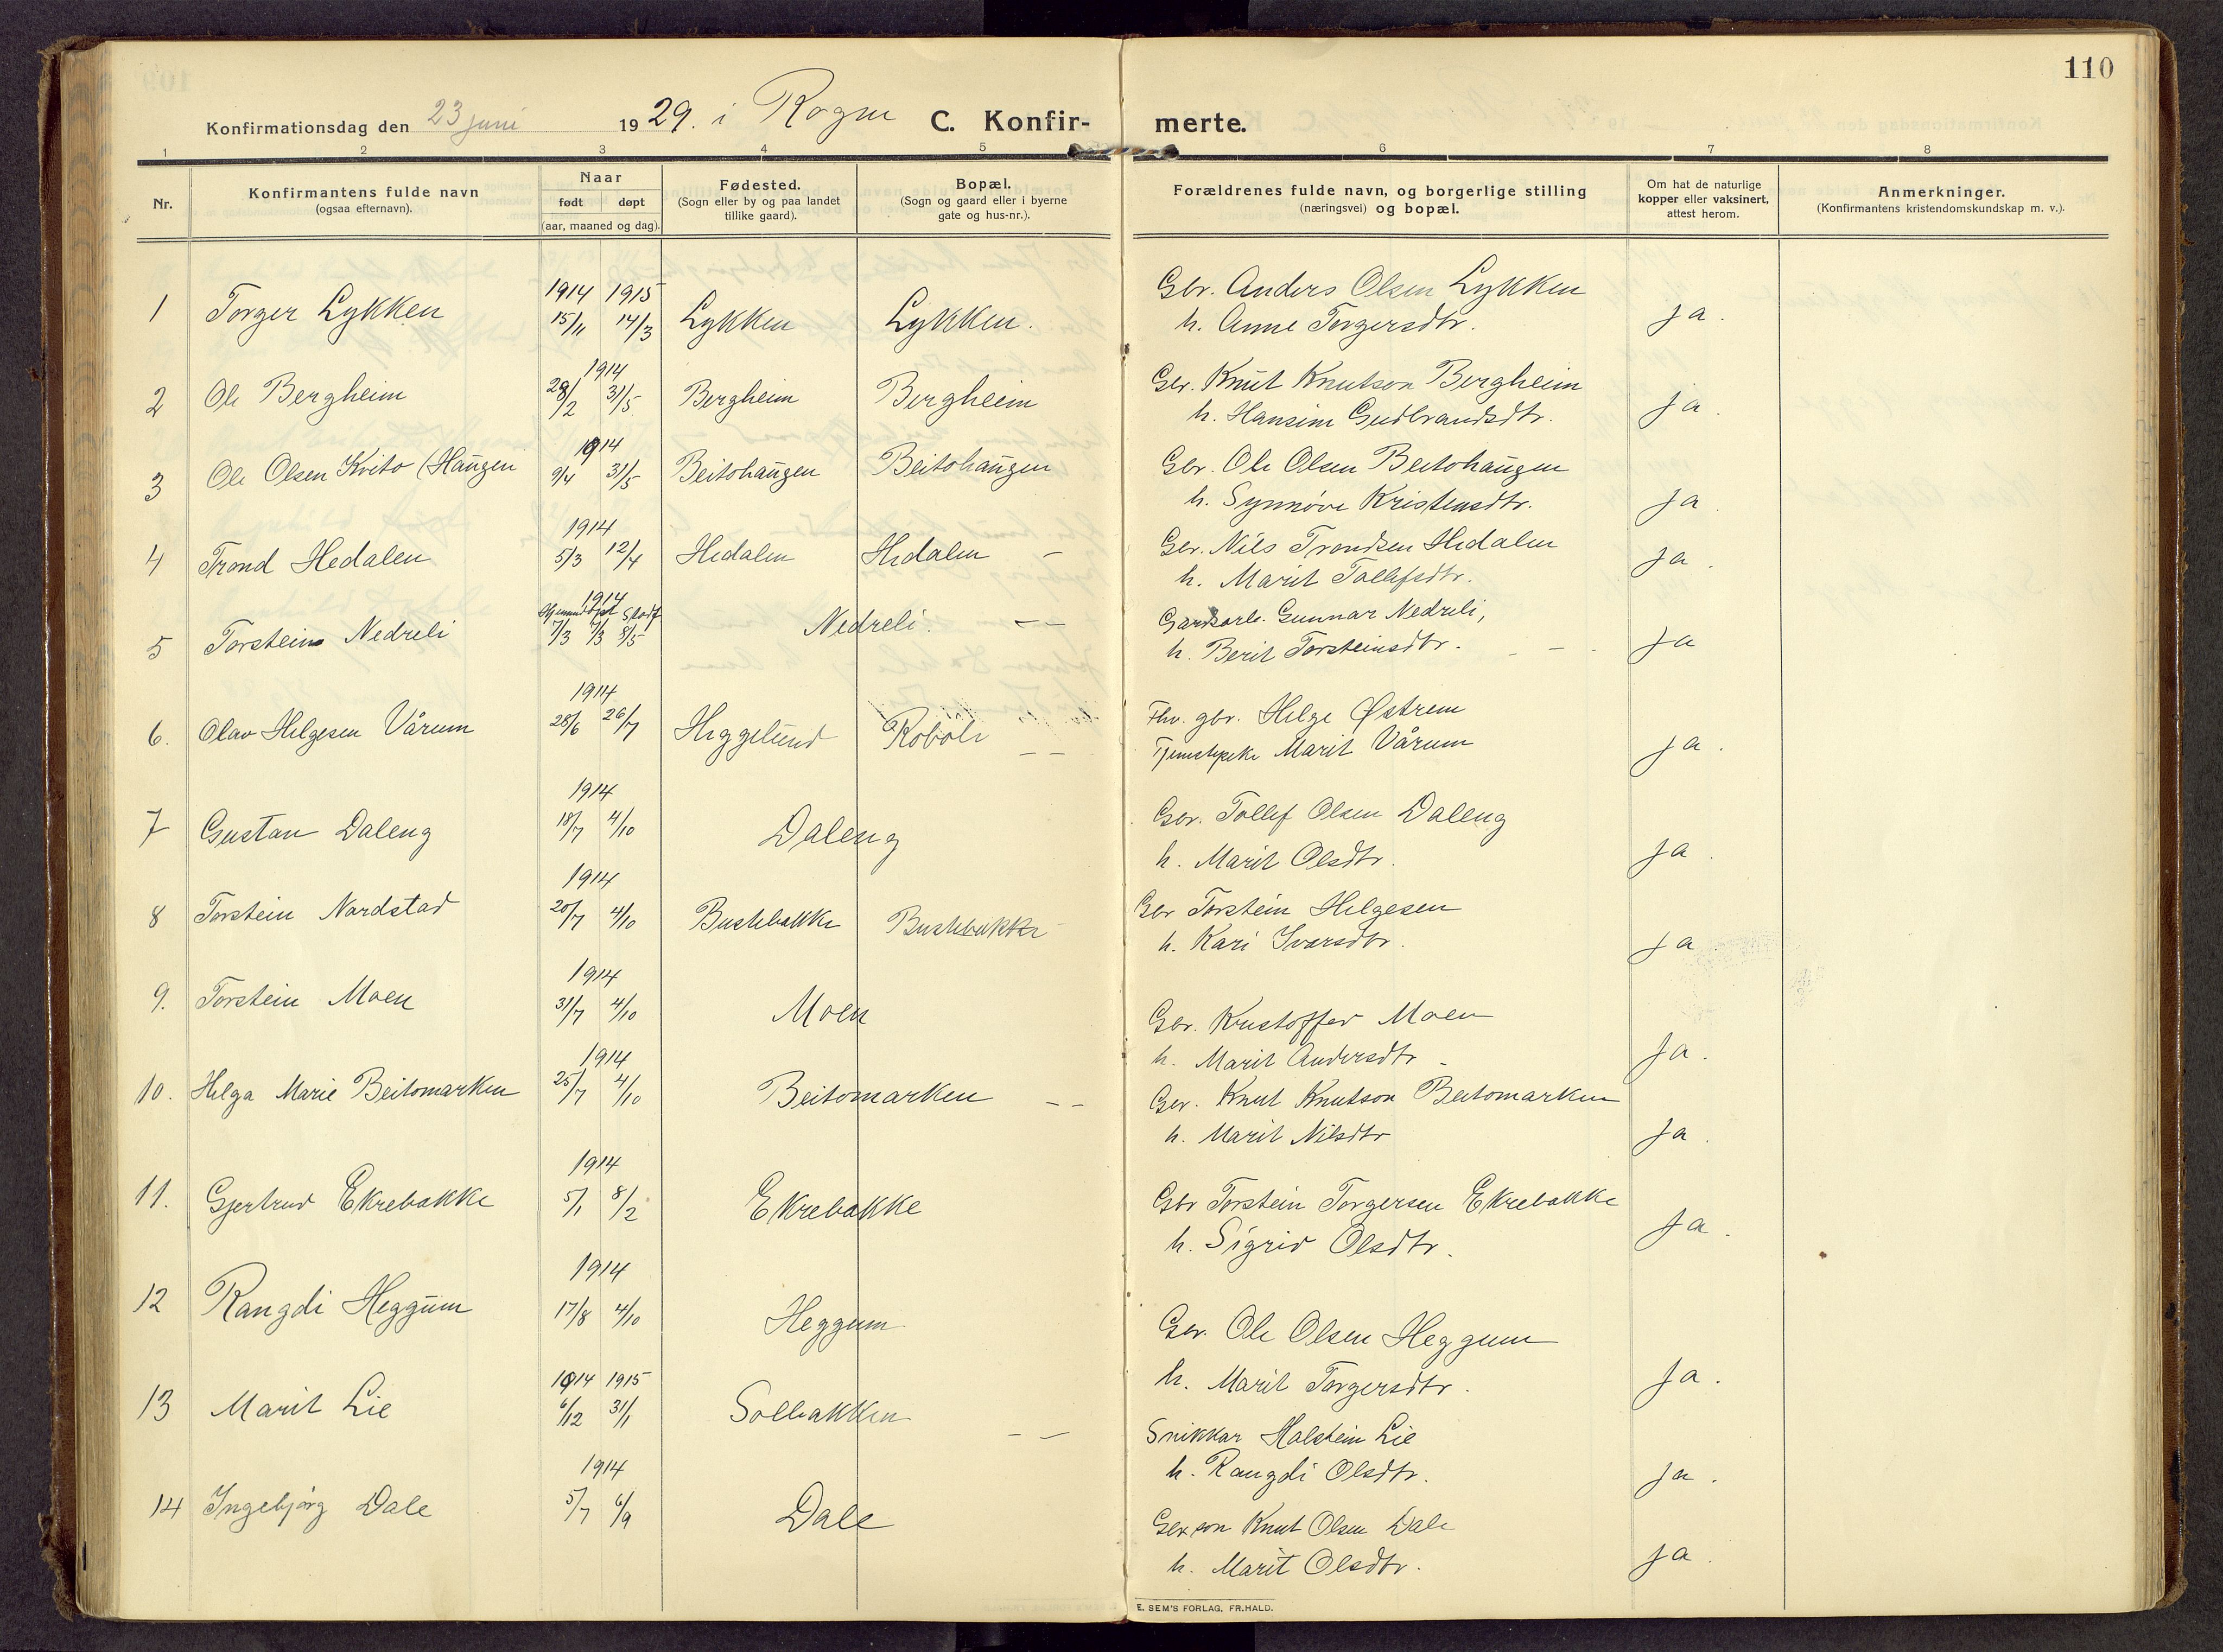 110
Konfirmationsdag den 23 juni 1929. i Rogne C. Konfir- merte.
1 2 3 4 5 6 7 8
Nr.
Konfirmantens fulde navn
(ogsaa efternavn).
Naar
født døpt
(aar, maaned og dag).
Fødested.
(Sogn eller by og paa landet
tillike gaard).
Bopæl.
(Sogn og gaard eller i byerne
gate og hus-nr.).
Forældrenes fulde navn, og borgerlige stilling
(næringsvei) og bopæl.
Om hat de naturlige
kopper eller vaksinert,
attest herom.
Anmerkninger.
(Konfirmantens kristendomskundskap m. v.).
1914 1915 Gbr. Anders Olsen Lykken
1 Torger Lykken 15/11 14/3 Lykken Lykken. h. Anne Torgersdtr. ja.
1914 Gbr. Knut Knutson Bergheim
2 Ole Bergheim 28/2 31/5 Bergheim Bergheim h. Hansine Gudbrandsdtr. ja.
1914 Gbr. Ole Olsen Beitohaugen
3 Ole Olsen Kvito (Haugen 9/4 31/5 Beitohaugen Beitohaugen h. Synnøve Kristensdtr. ja.
1914 Gbr. Nils Trondsen Hedalen
4 Trond Hedalen 5/3 12/4 Hedalen Hedalen – h. Marit Tollefsdtr. ja.
1914 Gardsarb. Gunnar Nedreli,
5 Torstein Nedreli 7/3 7/3 8/5 Nedreli. – – h. Berit Torsteinsdtr. – – ja
1914 Fhv. gbr. Helge Østrem
6. Olav Helgesen Vårum 28/6 26/7 Heggelund Robøle – – Marit Vårum ja.
1914 Gbr. Tollef Olsen Daleng
7 Gustav Daleng 18/7 4/10 Daleng h. Marit Olsdtr. ja.
1914 Gbr Torstein Helgesen
8 Torstein Nordstad 20/7 4/10 Buskebakke Buskebakke h. Kari Ivarsdtr. ja
1914
9. Torstein Moen 31/7 4/10 Moen Gbr. Kristoffer Moen
h. Marit Andersdtr – ja.
1914
10. Helga Marie Beitomarken 25/7 4/10 Beitomarken – – Gbr. Knut Knutson Beitomarken
h. Marit Nilsdtr ja.
1914
11. Gjertrud Ekrebakke 5/1 8/2 Ekrebakke Gbr Torstein Torgersen Ekrebakke
h. Sigrid Olsdtr. ja.
1914
12 Rangdi Heggum 17/8 4/10 Heggum Gbr. Ole Olsen Heggum
h. Marit Torgersdtr. ja.
1914 1915
13 Marit Lie 6/12 31/1 Solbakken – – Snikkar Halstein Lie
h. Rangdi Olsdtr. ja.
1914
14 Ingebjørg Dale 5/7 6/9 Dale Gbr.son Knut Olsen Dale
h. Marit Olsdtr. ja.
E. SEM'S FORLAG, FR.HALD.